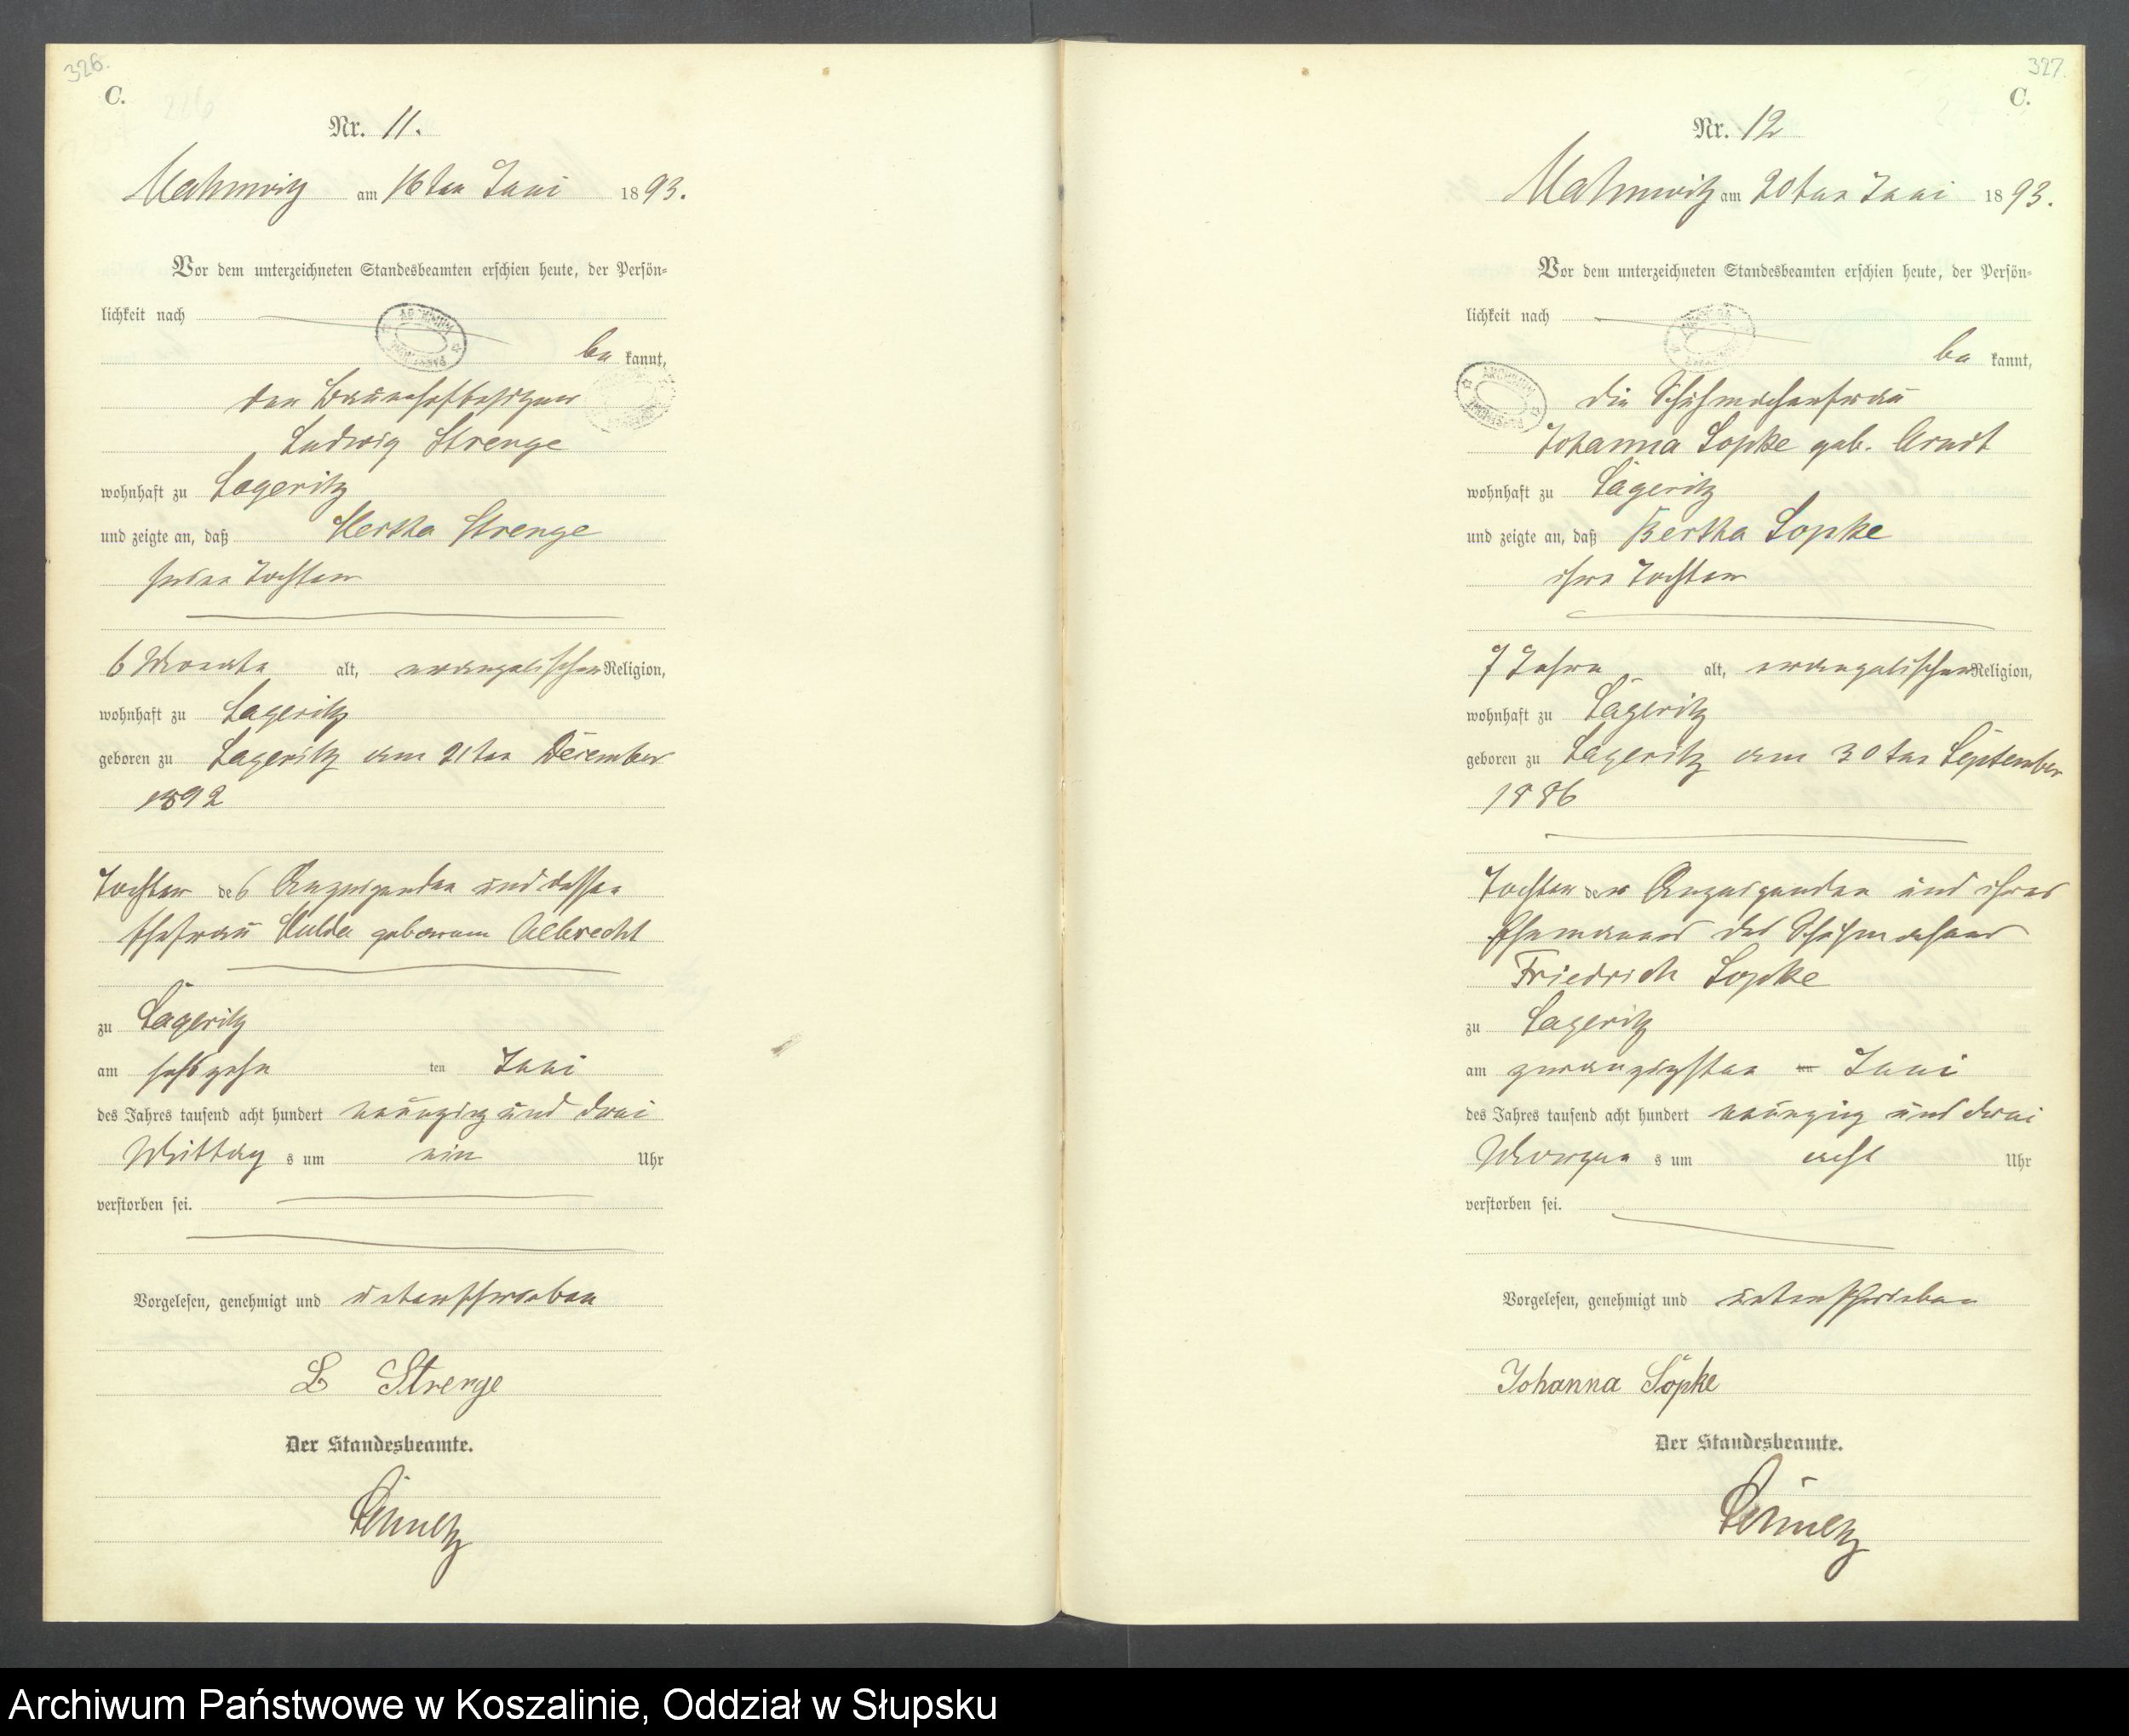 326.
C.
Nr. 11.
Mahnwitz am 16ten Juni 1893.
Vor dem unterzeichneten Standesbeamten erschien heute, der Persön-
lichkeit nach
be kannt,
der Bauerhofbesitzer
Ludwig Strenge
wohnhaft zu Lageritz
und zeigte an, daß Hertha Strenge
seine Tochter
6 Monate alt, evangelischer Religion,
wohnhaft zu Lageritz
geboren zu Lageritz am 21ten December
1892
Tochter des Anzeigenden und dessen
Ehefrau Hulda geborenen Albrecht
zu Lägeritz
am sechszehn ten Juni
des Jahres tausend acht hundert neunzig und drei
Mittag s um ein Uhr
verstorben sei.
Vorgelesen, genehmigt und unterschrieben
L Strenge
Der Standesbeamte.
327.
C.
Nr. 12
Mahnwitz am 20ten Juni 1893.
Vor dem unterzeichneten Standesbeamten erschien heute, der Persön-
lichkeit nach
be kannt,
die Schuhmacherfrau
Johanna Sopke geb. Arndt
wohnhaft zu Lägeritz
und zeigte an, daß Bertha Sopke
ihre Tochter
7 Jahre alt, evangelischer Religion,
wohnhaft zu Lägeritz
geboren zu Lageritz am 30ten September
1886
Tochter der Anzeigenden und ihres
Ehemannes des Schuhmachers
Friedrich Sopke
zu Lageritz
am zwanzigsten ten Juni
des Jahres tausend acht hundert neunzig und drei
Morgen s um acht Uhr
verstorben sei.
Vorgelesen, genehmigt und unterschrieben
Johanna Söpke
Der Standesbeamte.
Archiwum Państwowe w Koszalinie, Oddział w Słupsku